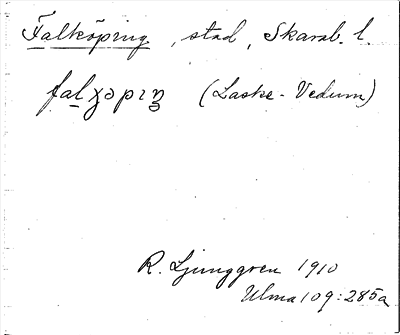 Falköping, stad, Skarab. l.
falχəpıŋ (Laske-Vedum)
R. Ljunggren 1910
Ulma 109:285a